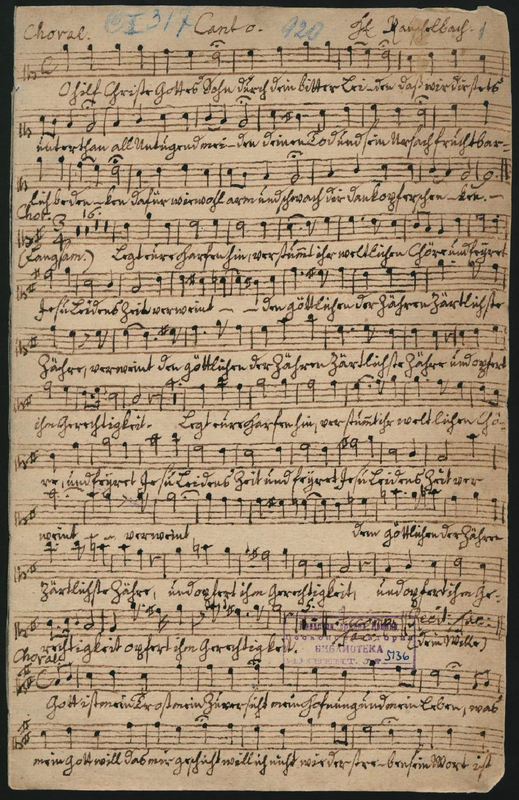 Choral. C I 317 Canto. 920 1
O hilf Christe Gottes Sohn durch dein bitter Leiden daß wir dir stets
unterthan all Untugend mei-den deinen Tod und sein Ursach fruchtbar-
lich beden-ken dafür wiewohl arm und schwach dir dankopfer schen-ken.
Chor. 16.
(Langsam.) Legt eure Harfen hin, verstum̅t ihr weltlichen Chöre und feyret
Jesu Leidens Zeit verweint - - den göttlichen der Zähren Zärtlichste
Zähre, verweint den göttlichen der Zähren Zärtlichste Zähre und opfert
ihm Gerechtigkeit. Legt eure Harfen hin, verstum̅t ihr weltlichen Chö-
re, und feyret Jesu Leidens Zeit und feyret Jesu Leidens Zeit ver
weint - - verweint den göttlichen der Zähren
Zärtlichste Zähre, und opfert ihm Gerechtigkeit, und opfert ihm Ge-
5.
Recit: tac:
rechtigkeit opfert ihm Gerechtigkeit. (dein Wille)
БИБЛИОТЕКА
5136
Choral.
Gott ist mein Trost mein Zuversicht mein Hofnung und mein Leben, was
mein Gott will das mir geschicht will ich nicht widerstre-ben sein Wort ist